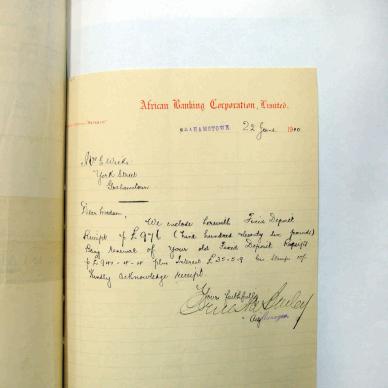 African Banking Corporation, Limited.
GRAHAMSTOWN 22 June 1900
Mrs E Wicks
York Street
Grahamstown
Dear Madam,
We enclose herewith Fixed Deposit
Receipt of £976 (Nine hundred & seventy six pounds)
being renewal of your old Fixed Deposit Receipt
of £940 plus Interest £35-5-9
Kindly acknowledge receipt.
Yours faithfully